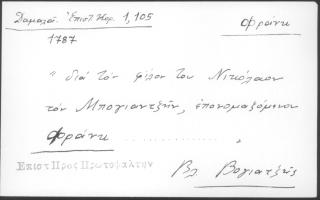 Δαμαλά. Ἐπιστ. Κορ. 1, 105
Φράνκ
1787
" διά τόν φίλον του Νικόλαον
τόν Μπογιαντζῆν, ἐπονομαζόμενον
Φράνκ .............. "
Επιστ Προς Πρωτοψαλτην
Βλ Βογιατζῆς